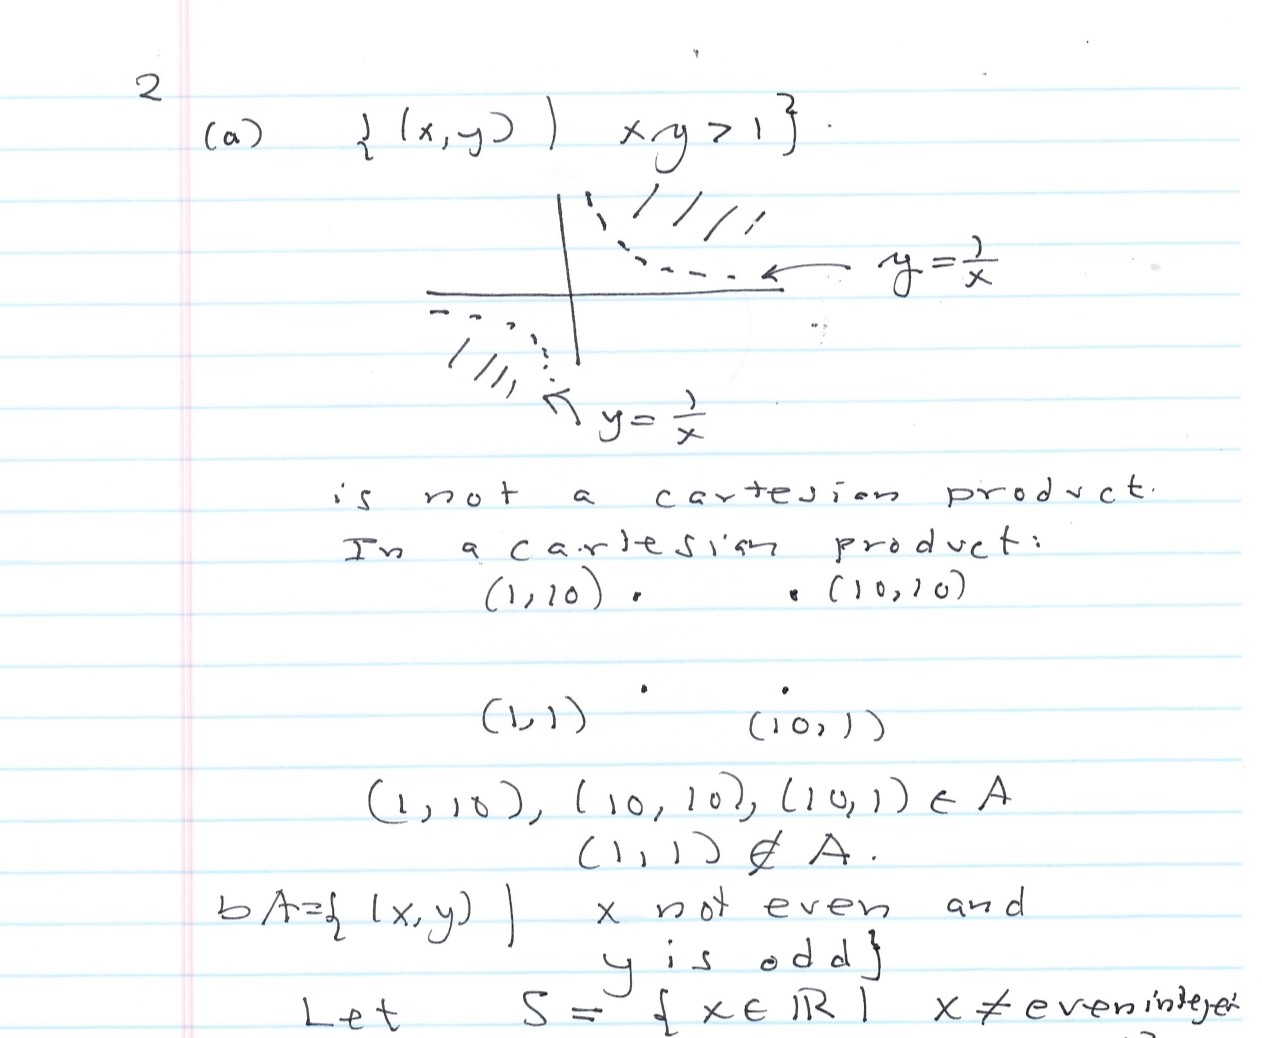 2
(a) {(x,y) | xy > 1}.
y = 1/x
y = 1/x
is not a cartesian product.
In a cartesian product:
(1,10) . . (10,10)
(1,1) . . (10,1)
(1,10), (10,10), (10,1) ∈ A
(1,1) ∉ A.
b A={(x,y) | x not even and
y is odd}
Let S = {x ∈ ℝ | x ≠ even integer